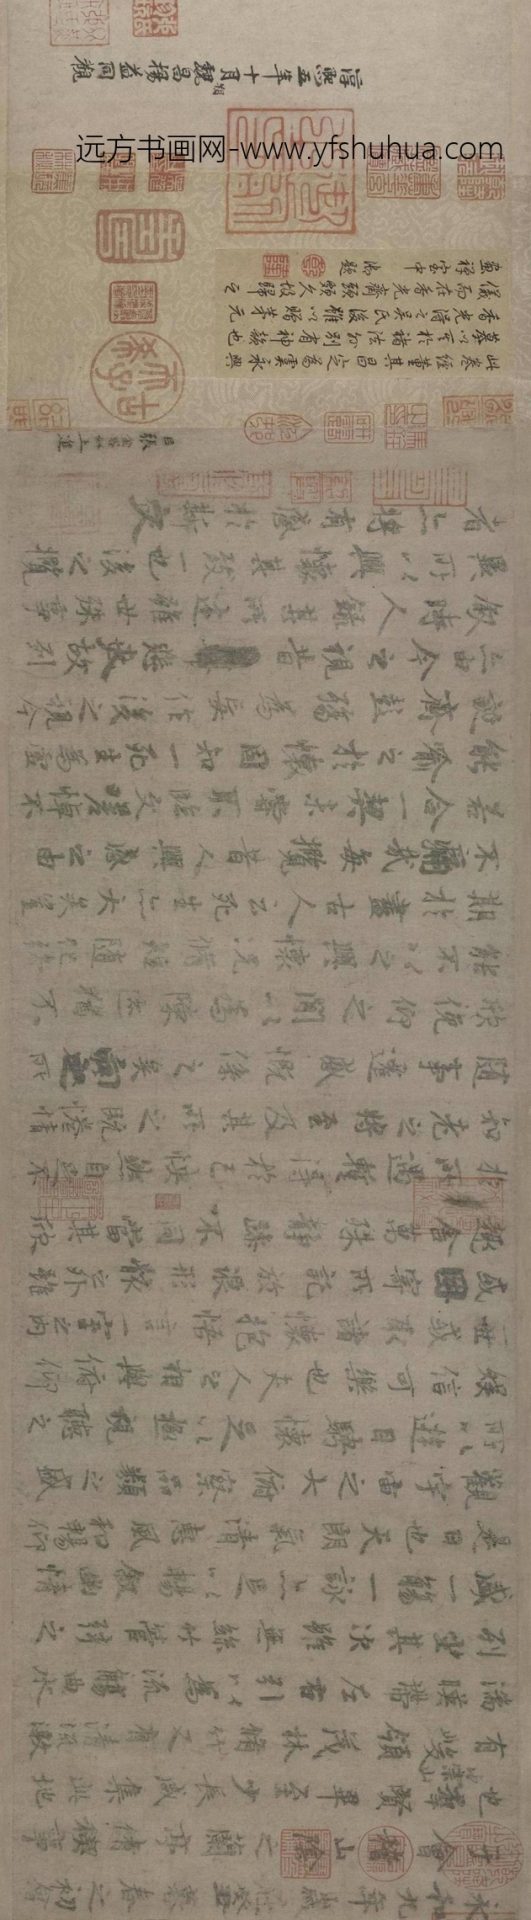 永和九年歲在癸丑暮春之初會
于會稽山陰之蘭亭脩稧事
也羣賢畢至少長咸集此地
有崇山峻領茂林脩竹又有清流激
湍暎帶左右引以為流觴曲水
列坐其次雖無絲竹管弦之
盛一觴一詠亦足以暢敘幽情
是日也天朗氣清惠風和暢仰
觀宇宙之大俯察品類之盛
所以遊目騁懷足以極視聽之
娛信可樂也夫人之相與俯仰
一世或取諸懷抱悟言一室之內
或因寄所託放浪形骸之外雖
趣舍萬殊靜躁不同當其欣
於所遇暫得於己快然自足不
知老之將至及其所之既惓情
隨事遷感慨係之矣向之所
欣俛仰之閒以為陳迹猶不
能不以之興懷況脩短隨化終
期於盡古人云死生亦大矣豈
不痛哉每攬昔人興感之由
若合一契未嘗不臨文嗟悼不
能喻之於懷固知一死生為虛
誕齊彭殤為妄作後之視今
亦由今之視昔悲夫故列
敘時人錄其所述雖世殊事
異所以興懷其致一也後之攬
者亦將有感於斯文
臣張金界奴上進
此卷經董其昌定為虞永興
摹以其於褚法外別有神韻也
香光得之吳氏後雖貽茅元
儀而在香光齋頭頗久故歸之
畫禪室中御題
淳熙五年十月魏昌楊益同觀
远方书画网-www.yfshuhua.com